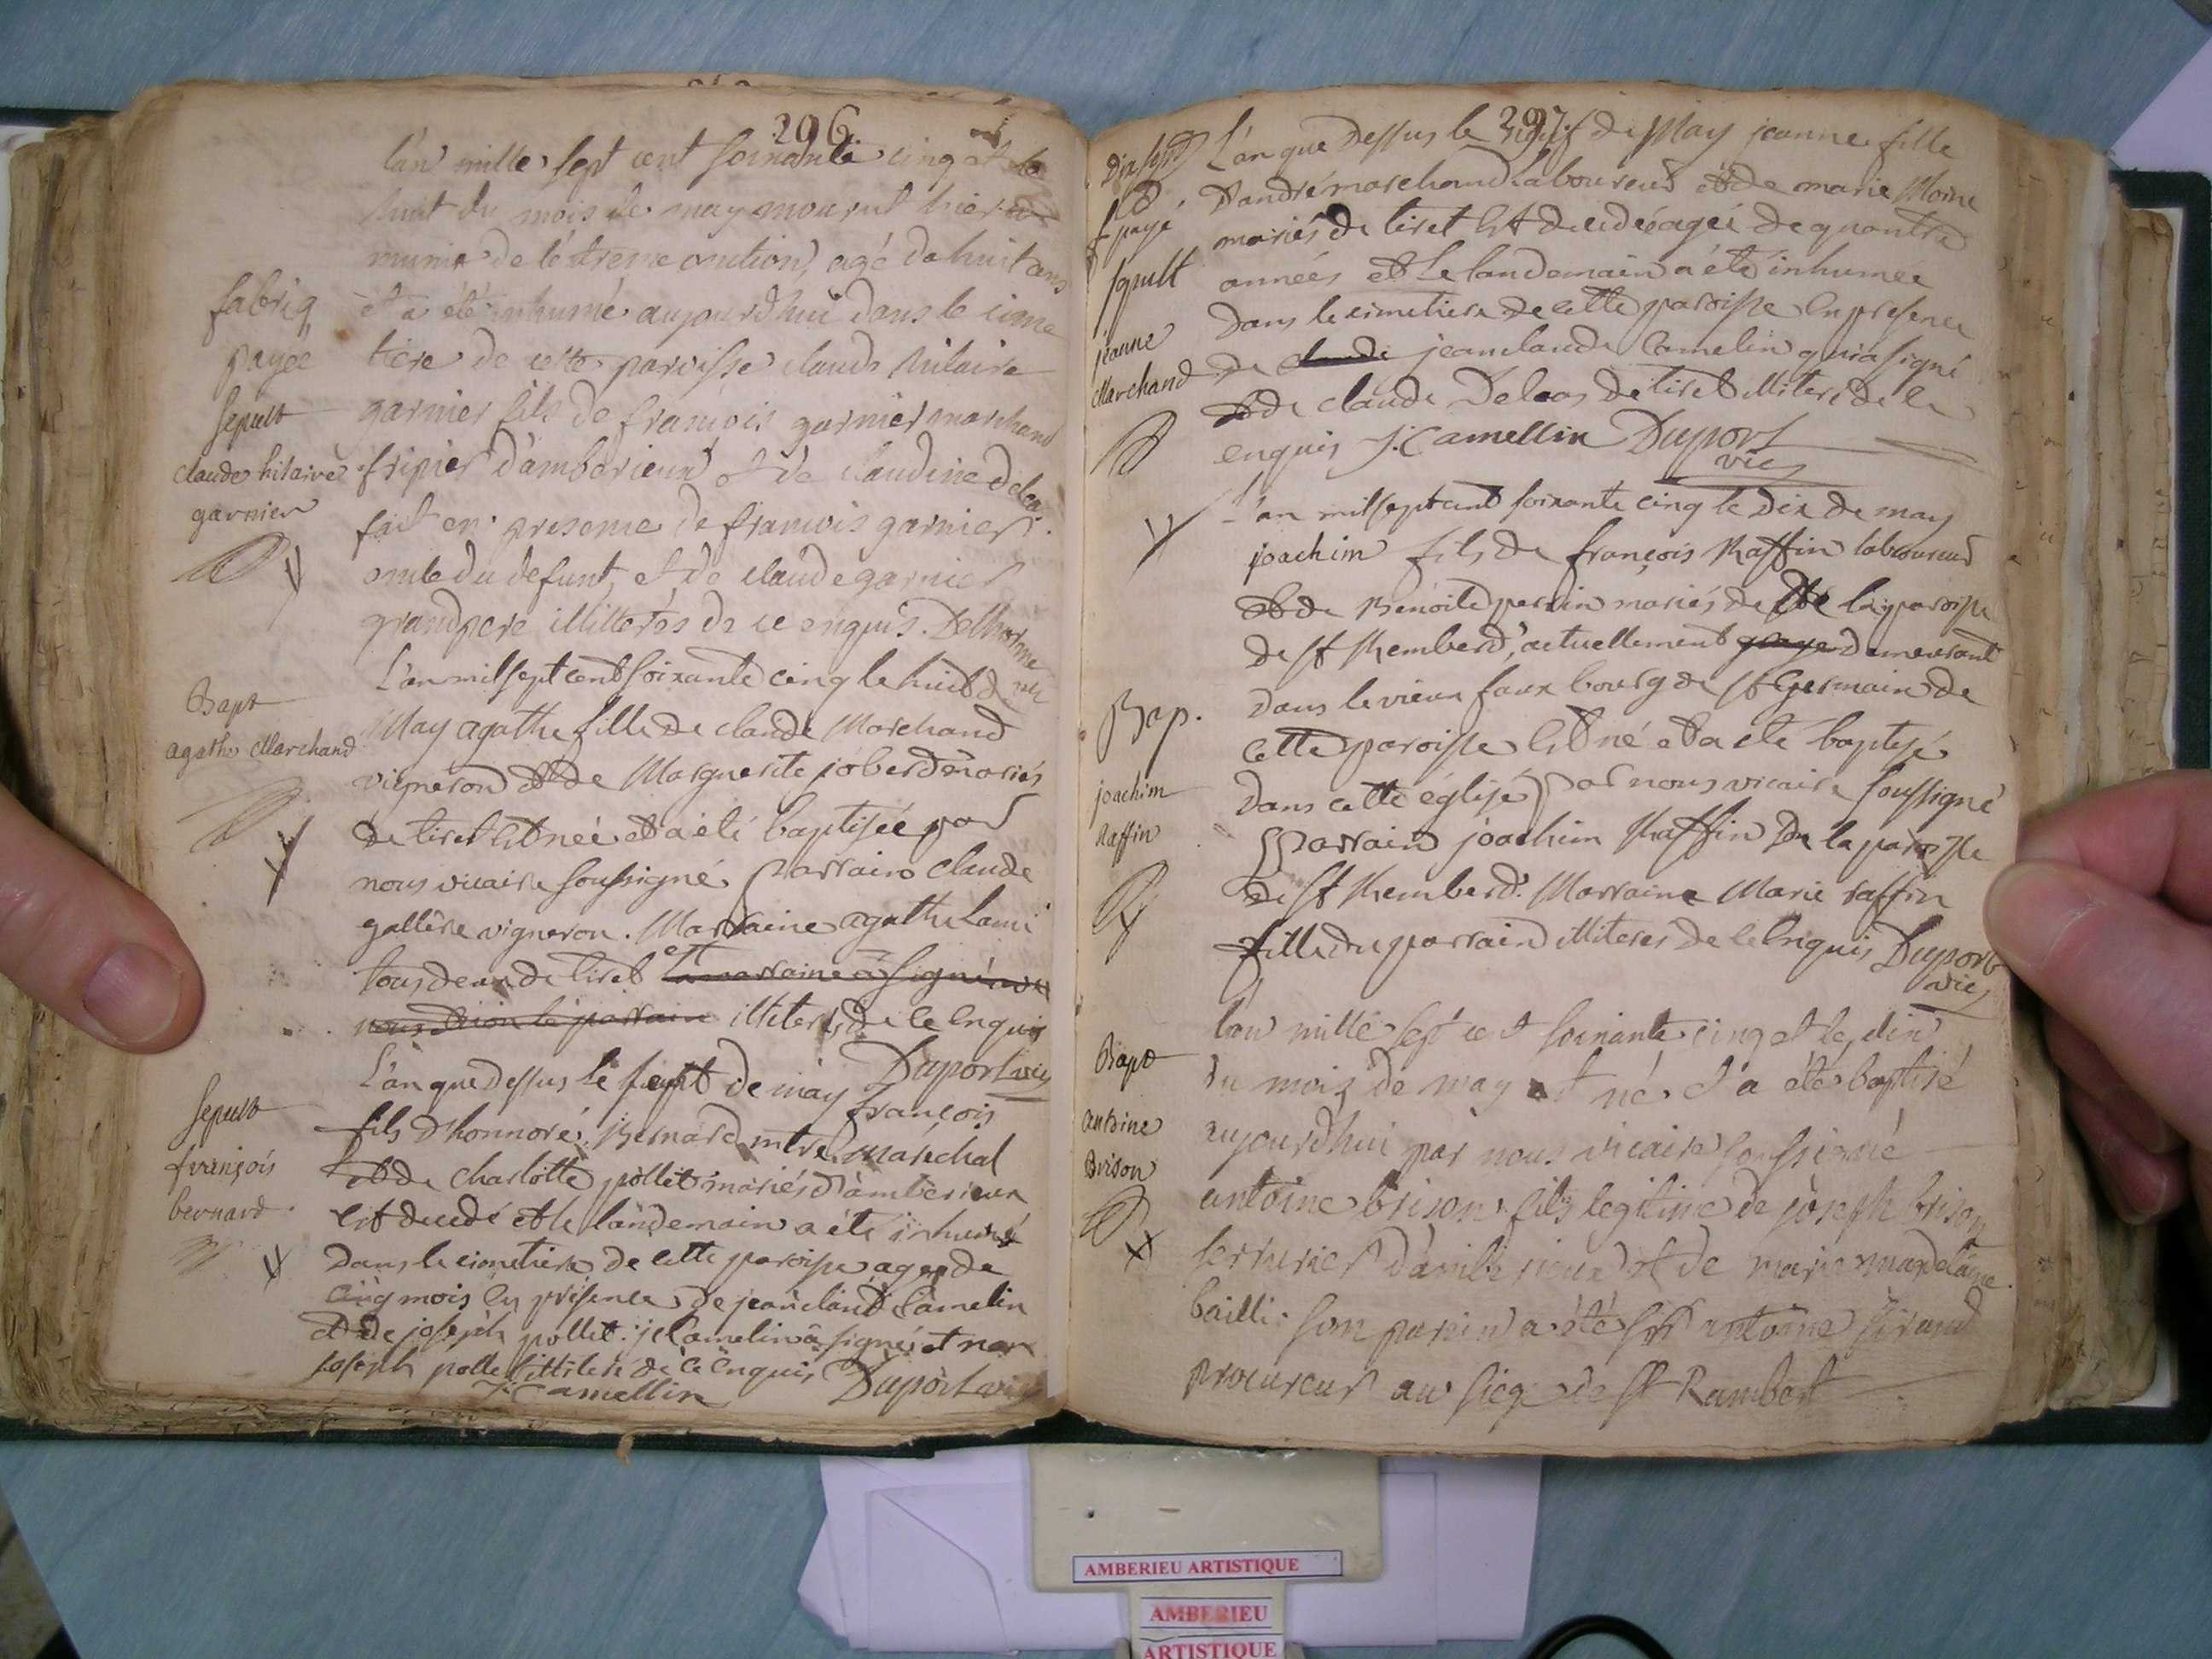 206
l'an mille sept cent soixante cinq et le
huit du mois de may mourut hier
munis de l'étreme onction, agé de huit ans
et a été inhumé aujourd'hui dans le cime
tiere de cette paroisse claude hilaire
garnier fils de francois garnier marchand
fripier d'amberieux et de claudine delea
fait en presence de francois garnier
oncle du defunt, et de claude garnier
grandpere illitterés de ce enquis. Delhorme
vic
fabriq
payée
sepult
claude hilaire
garnier
L'an mil sept cent soixante cinq le huit de
May agathe fille de claude Marchand
vigneron et de Marguerite joberd mariés
de tiret est née et a été baptisée par
nous vicaire soussigné parrain claude
gallere vigneron. Marraine agathe Lami
tous deux de tiret et la marraine a signé
non le parrain illiterés de ce enquis
Duport vic
Bapt
agathe Marchand
L'an que dessus le sept de may françois
fils d'honnoré Bernard mtre maréchal
et de charlotte pollet mariés d'amberieux
est decedé et le landemain a été inhumé
dans le cimetiere de cette paroisse agé de
cinq mois en présence de jean claude Camelin
et de joseph pollet: j Camelin a signé et non
joseph pollet illiteré de ce enquis
J: Camellin Duport vic
sepult
françois
bernard
297
L'an que dessus le neuf de May jeanne fille
d'andré marchand laboureur et de marie Moine
mariés de tiret est decedée agée de quatre
années et le landemain a été inhumée
dans le cimetiere de cette paroisse en presence
de claude jean claude Camelin qui a signé
et de claude Deleas de tiret illiteré de ce
enquis J: Camellin Duport
vic
payé
spult
jeanne
Marchand
L'an mil sept cent soixante cinq le dix de may
joachim fils de françois Raffin laboureur
et de Benoite perrin mariés de la paroisse
de st Remberd, actuellement demeurant
dans le vieux faux bourg de st Germain de
cette paroisse est né et a été baptisé
dans cette église par nous vicaire soussigné
Parrain joachim Raffin de la paroisse
de st Remberd. Marraine Marie raffin
fille du parrain illiteres de ce enquis Duport
vic
Bap.
joachim
Raffin
l'an mille sept cent soixante cinq et le dix
du mois de may est né et a été baptisé
aujourd'hui par nous vicaire soussigné
antoine brison fils legitime de joseph brison
serrurier d'amberieux et de marie mandelaine
bailli: son parein a été sr antoine sirand
procureur au siege de st Rambert
Bapt
antoine
Brison
AMBERIEU ARTISTIQUE
AMBERIEU
ARTISTIQUE